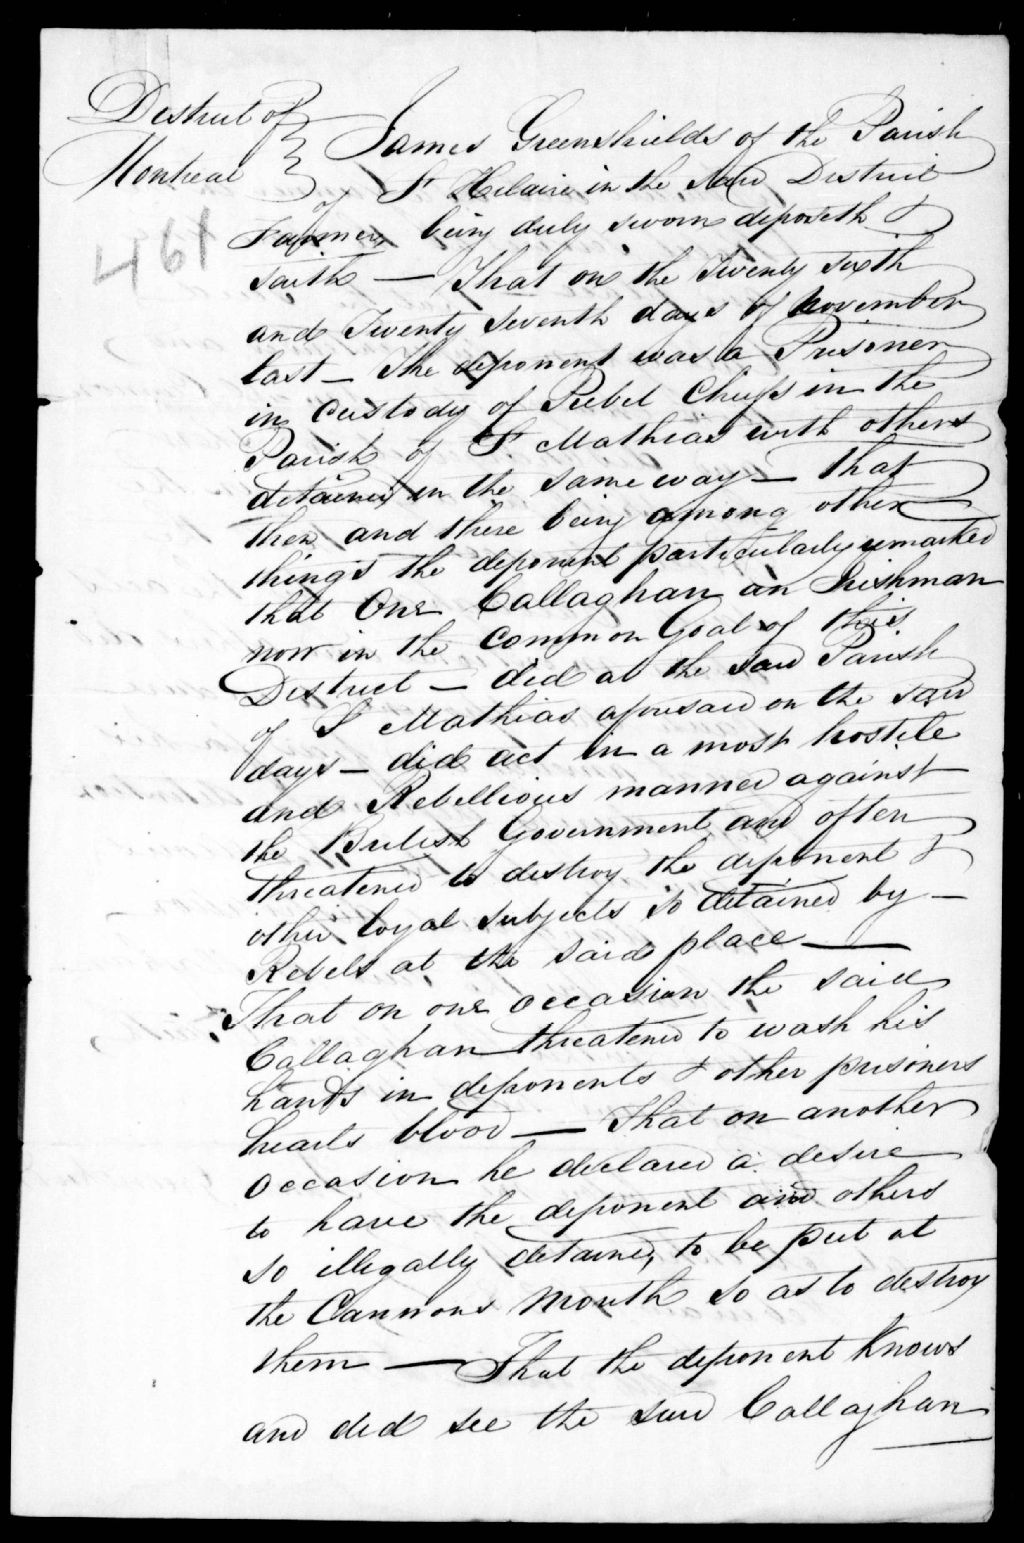 District of
Montreal
461
James Greenshields of the Parish
of St Hilaire in the said District
Farmer, being duly sworn deposeth &
saith — That on the Twenty sixth
and Twenty seventh days of November
last — The deponent was a Prisoner
in custody of Rebel Chiefs in the
Parish of St. Mathias with others
detained in the same way — that
then and there being among other
things the deponent particularly remarked
that One Callaghan an Irishman
now in the common Goal of this
District — did at the said Parish
of St Mathias aforesaid on the said
days — did act in a most hostile
and Rebellious manner against
the British Government and often
threatened to destroy the deponent &
other loyal subjects so detained by —
Rebels at the said place —
That on one occasion the said
Callaghan threatened to wash his
hands in deponents & other prisoners
hearts blood — That on another
occasion he declared a desire
to have the deponent and others
so illegally detained, to be put at
the Cannons mouth so as to destroy
them — That the deponent knows
and did see the said Callaghan